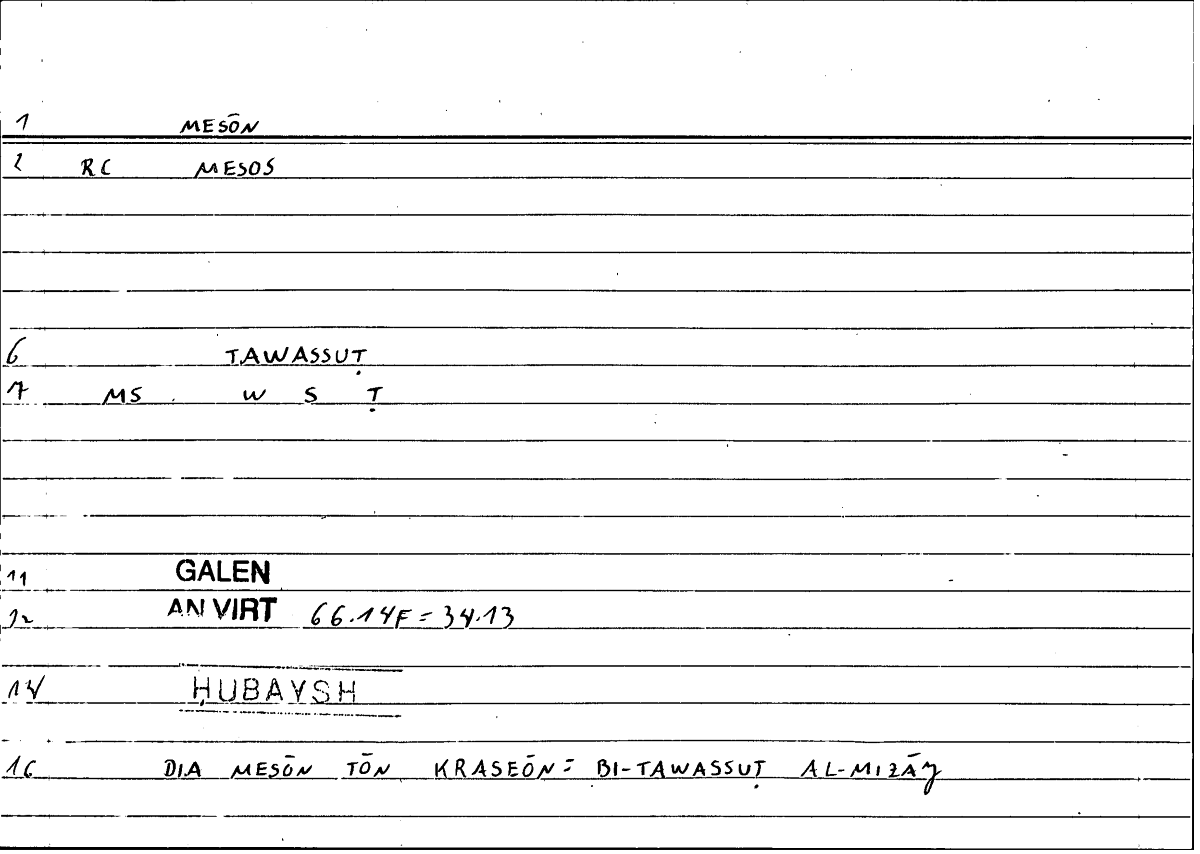 1 MESŌN
2 RC MESOS
6 TAWASSUṬ
7 MS. W S Ṭ
11 GALEN
12 AN VIRT 66.14F = 34.13
14 ḤUBAYSH
16 DIA MESŌN TŌN KRASEŌN = BI-TAWASSUṬ AL-MIZĀǦ